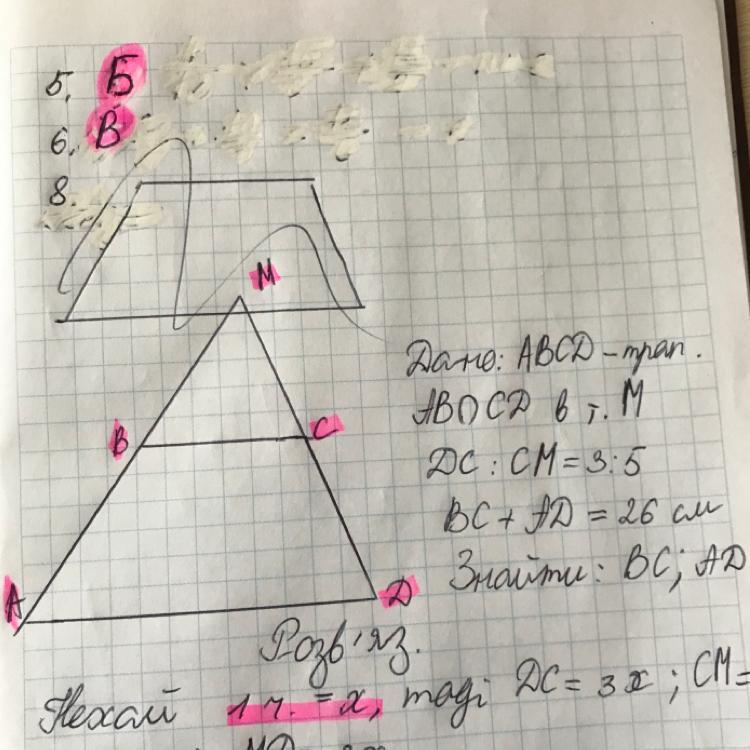 5. Б
6. В
8.
M
B
C
A
D
Дано: ABCD – трап.
AB∩CD в т. М
DC : CM = 3:5
BC + AD = 26 см
Знайти: BC; AD
Розв'яз.
Нехай 1 ч. = x, тоді DC = 3x ; CM =
MD =